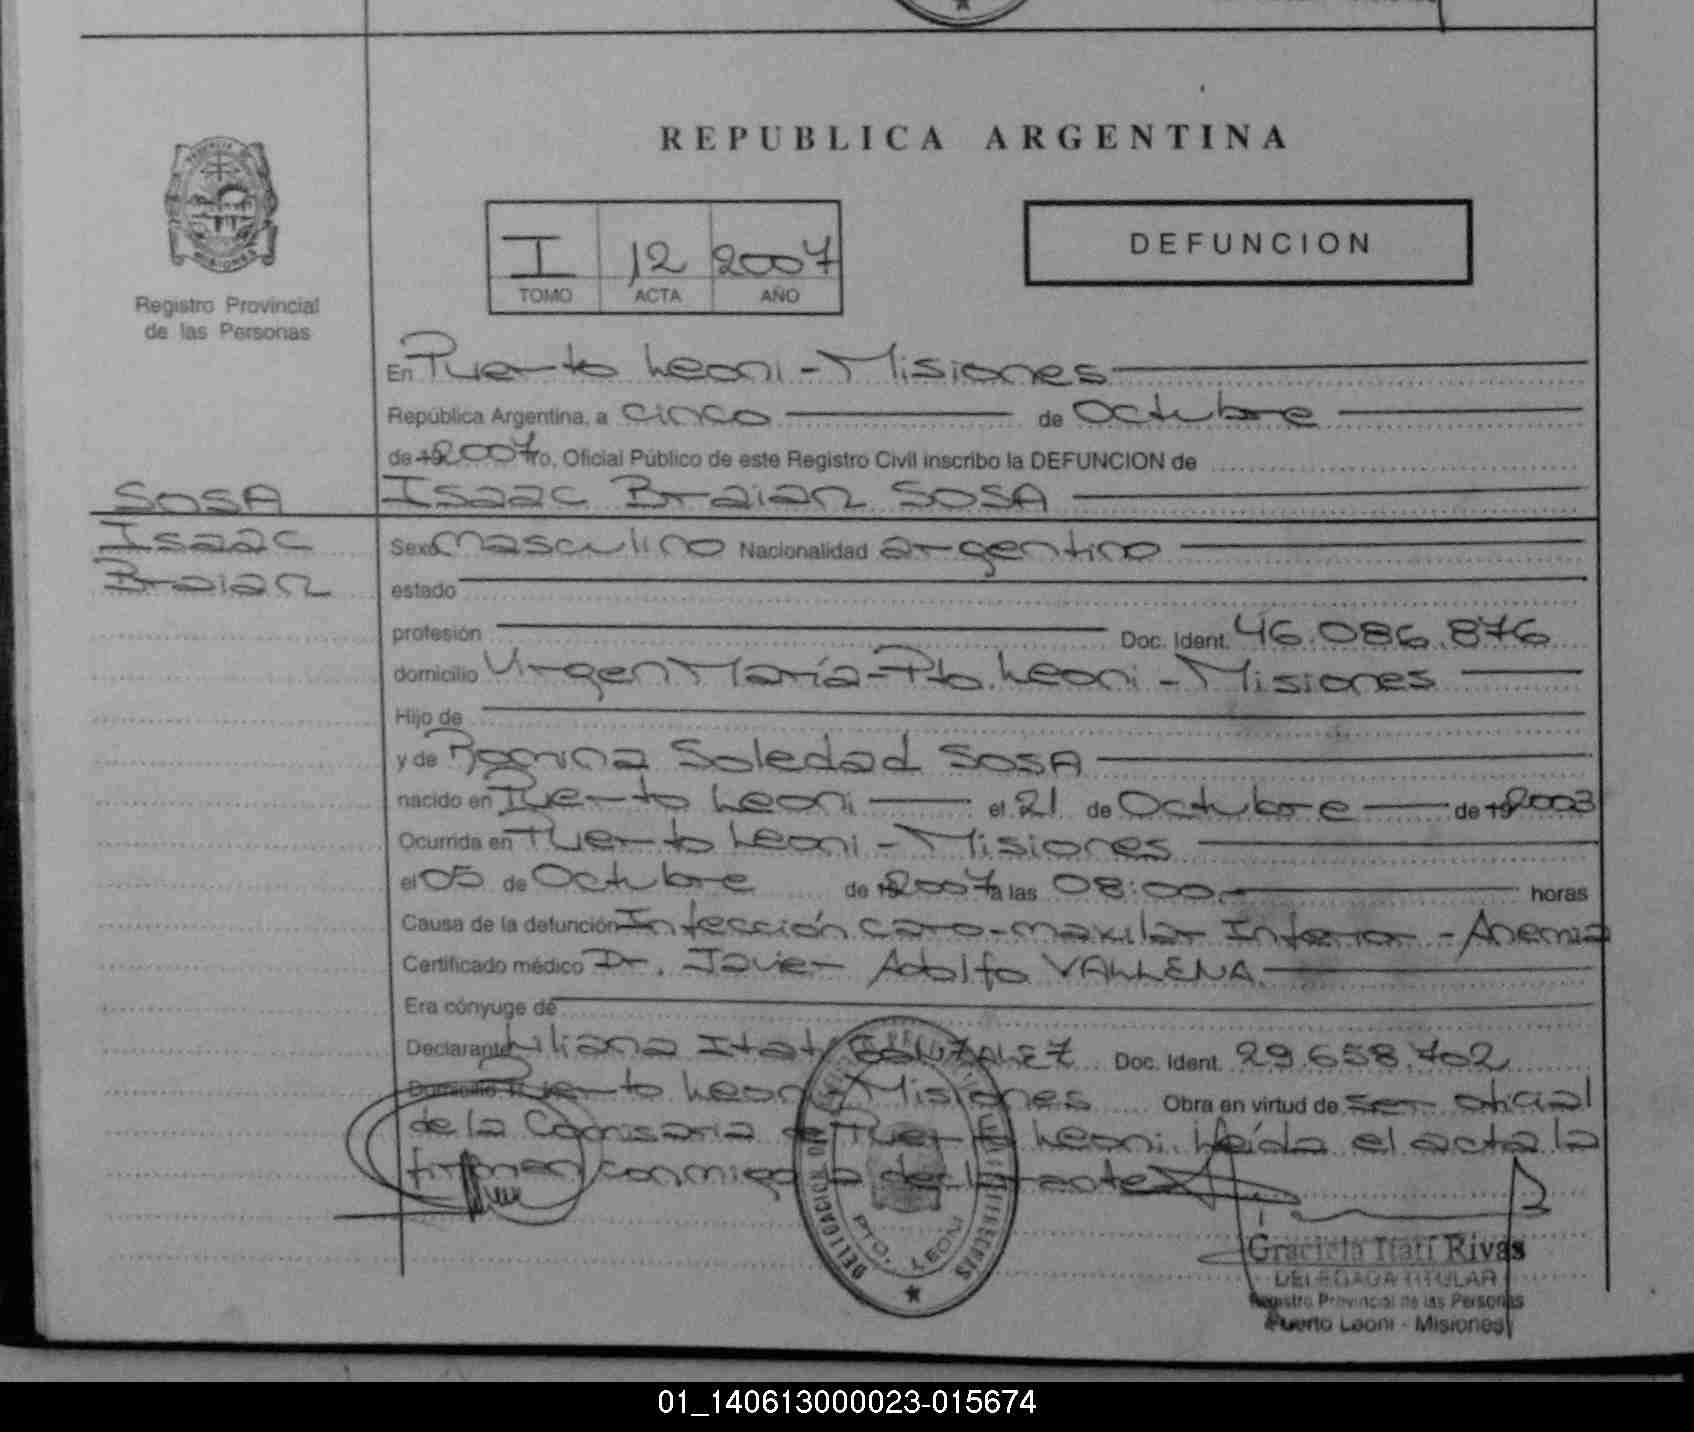 REPUBLICA ARGENTINA
I 12 2007
TOMO ACTA AÑO
DEFUNCION
Registro Provincial
de las Personas
En Puerto Leoni - Misiones
República Argentina, a cinco de Octubre
de 19 2007 ro, Oficial Público de este Registro Civil inscribo la DEFUNCION de
SOSA
Isaac
Braian
Isaac Braian SOSA
Sexo masculino Nacionalidad argentino
estado
profesión Doc. Ident. 46.086.876
domicilio Virgen María - Pto. Leoni - Misiones
Hijo de
y de Romina Soledad SOSA
nacido en Puerto Leoni el 21 de Octubre de 19 2003
Ocurrida en Puerto Leoni - Misiones
el 05 de Octubre de 19 2007 a las 08:00.- horas
Causa de la defunción Infección caro-maxilar Inferior - Anemia
Certificado médico Dr. Javier Adolfo VALLENA
Era cónyuge de
Declarante Liliana Itatí GONZALEZ Doc. Ident. 29.658.702
Domicilio Puerto Leoni - Misiones Obra en virtud de ser oficial
de la Comisaria de Puerto Leoni. Leída el acta la
firman conmigo la declarante
PTO. LEONI
Graciela Itatí Rivas
DELEGADA TITULAR
Registro Provincial de las Personas
Puerto Leoni - Misiones
01_140613000023-015674